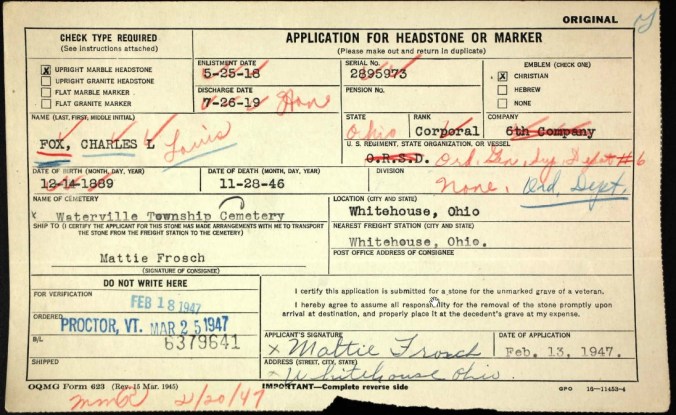 ORIGINAL
CHECK TYPE REQUIRED
(See instructions attached)
X UPRIGHT MARBLE HEADSTONE
UPRIGHT GRANITE HEADSTONE
FLAT MARBLE MARKER
FLAT GRANITE MARKER
APPLICATION FOR HEADSTONE OR MARKER
(Please make out and return in duplicate)
ENLISTMENT DATE
5-25-18
SERIAL NO.
2895973
EMBLEM (CHECK ONE)
X CHRISTIAN
HEBREW
NONE
DISCHARGE DATE
7-26-19 Hon
PENSION NO.
NAME (LAST, FIRST, MIDDLE INITIAL)
FOX, CHARLES L Louis
STATE
Ohio
RANK
Corporal
COMPANY
6th Company
U. S. REGIMENT, STATE ORGANIZATION, OR VESSEL
O.R.S.D. Ord. Gn. Sy. Dept #6
DATE OF BIRTH (MONTH, DAY, YEAR)
12-14-1889
DATE OF DEATH (MONTH, DAY, YEAR)
11-28-46
DIVISION
None. Ord. Dept.
NAME OF CEMETERY
x Waterville Township Cemetery
LOCATION (CITY AND STATE)
Whitehouse, Ohio
SHIP TO (I CERTIFY THE APPLICANT FOR THIS STONE HAS MADE ARRANGEMENTS WITH ME TO TRANSPORT
THE STONE FROM THE FREIGHT STATION TO THE CEMETERY)
NEAREST FREIGHT STATION (CITY AND STATE)
Whitehouse, Ohio.
Mattie Frosch
(SIGNATURE OF CONSIGNEE)
POST OFFICE ADDRESS OF CONSIGNEE
DO NOT WRITE HERE
FOR VERIFICATION
FEB 18 1947
ORDERED
PROCTOR, VT. MAR 25 1947
B/L
6379641
SHIPPED
I certify this application is submitted for a stone for the unmarked grave of a veteran.
I hereby agree to assume all responsibility for the removal of the stone promptly upon
arrival at destination, and properly place it at the decedent's grave at my expense.
APPLICANT'S SIGNATURE
x Mattie Frosch
DATE OF APPLICATION
Feb. 13, 1947.
ADDRESS (STREET, CITY, STATE)
x Whitehouse Ohio.
OQMG Form 623 (Rev. 15 Mar. 1945)
IMPORTANT—Complete reverse side
GPO 16—11453-4
2/20/47